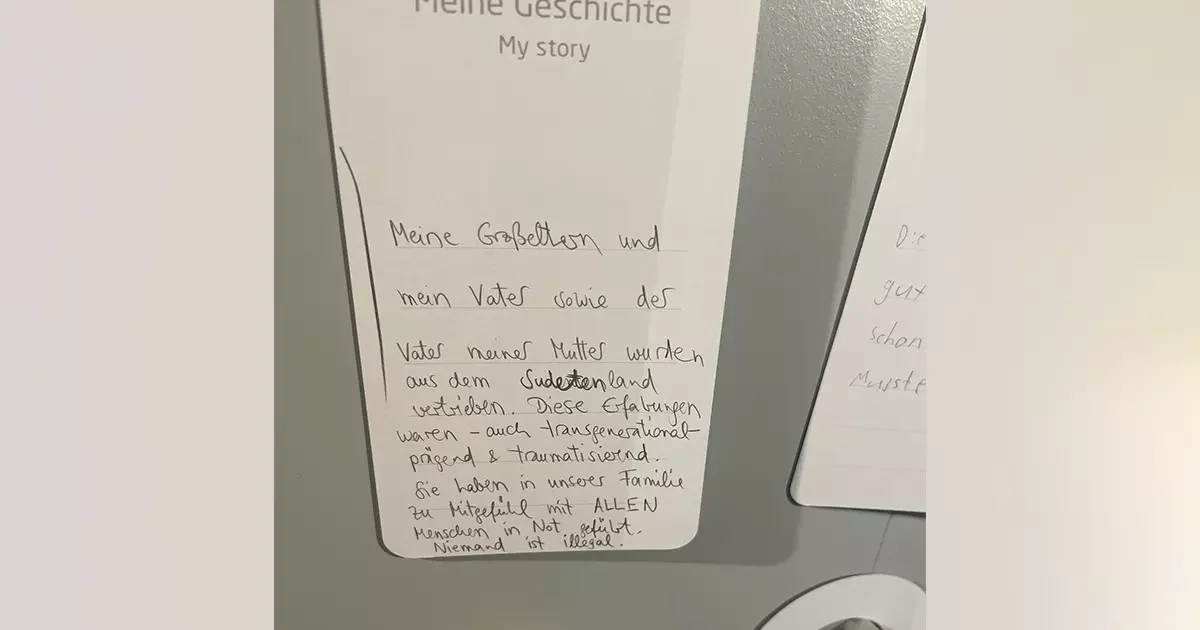 Meine Geschichte
My story
Meine Großeltern und
mein Vater sowie der
Vater meiner Mutter wurden
aus dem Sudetenland
vertrieben. Diese Erfahrungen
waren – auch transgenerational –
prägend & traumatisierend.
Sie haben in unserer Familie
zu Mitgefühl mit ALLEN
Menschen in Not geführt.
Niemand ist illegal.
Die
gut
schon
Musste